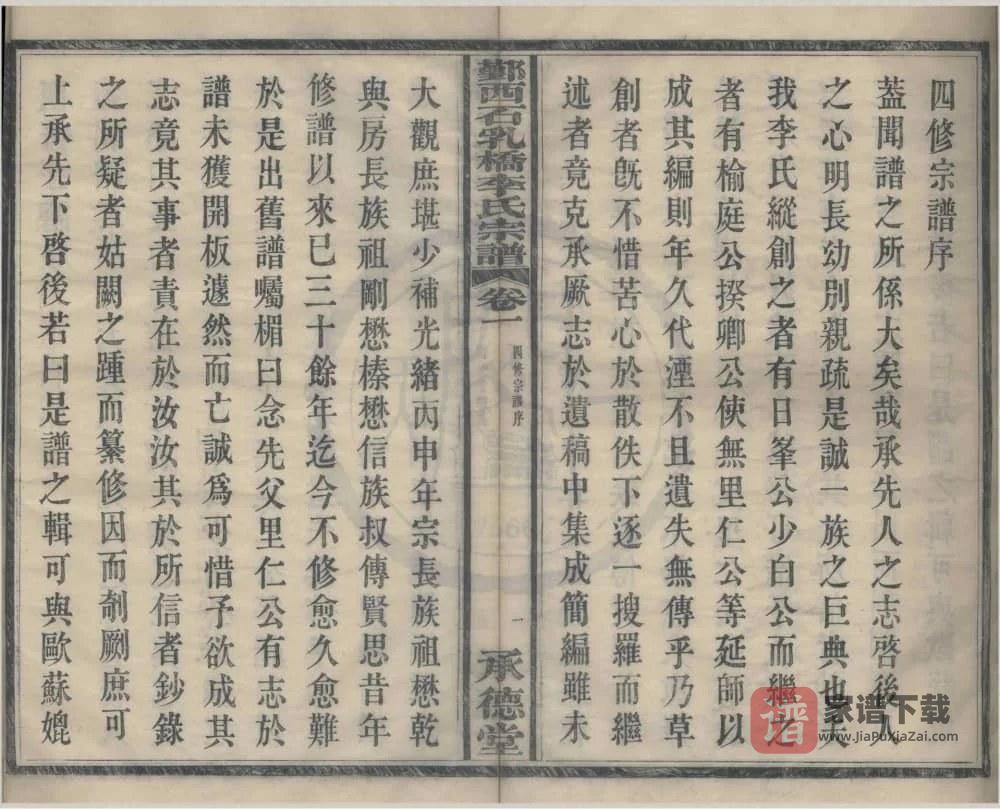 四修宗譜序
蓋聞譜之所係大矣哉承先人之志啓後人
之心明長幼別親疏是誠一族之巨典也夫
我李氏縱創之者有日峯公少白公而繼之
者有榆庭公揆卿公使無里仁公等延師以
成其編則年久代湮不且遺失無傳乎乃草
創者既不惜苦心於散佚下逐一搜羅而繼
述者竟克承厥志於遺稿中集成簡編雖未
鄞西石乳橋李氏宗譜
卷一
四修宗譜序
一
承德堂
大觀庶堪少補光緒丙申年宗長族祖懋乾
與房長族祖剛懋榛懋信族叔傳賢思昔年
修譜以來已三十餘年迄今不修愈久愈難
於是出舊譜囑楣曰念先父里仁公有志於
譜未獲開板遽然而亡誠爲可惜予欲成其
志竟其事者責在於汝汝其於所信者鈔錄
之所疑者姑闕之踵而纂修因而剞劂庶可
上承先下啓後若曰是譜之輯可與歐蘇媲
譜
家谱下载
www.JiaPuXiaZai.com